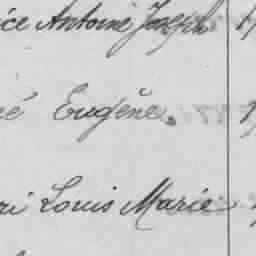 ice Antoine Joseph
né Eugène.
ri Louis Marie